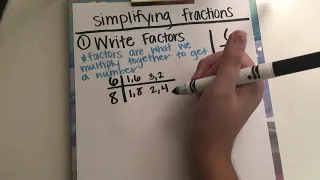 simplifying fractions
① Write Factors
*factors are what we
multiply together to get
a number
6 1,6 3,2
8 1,8 2,4